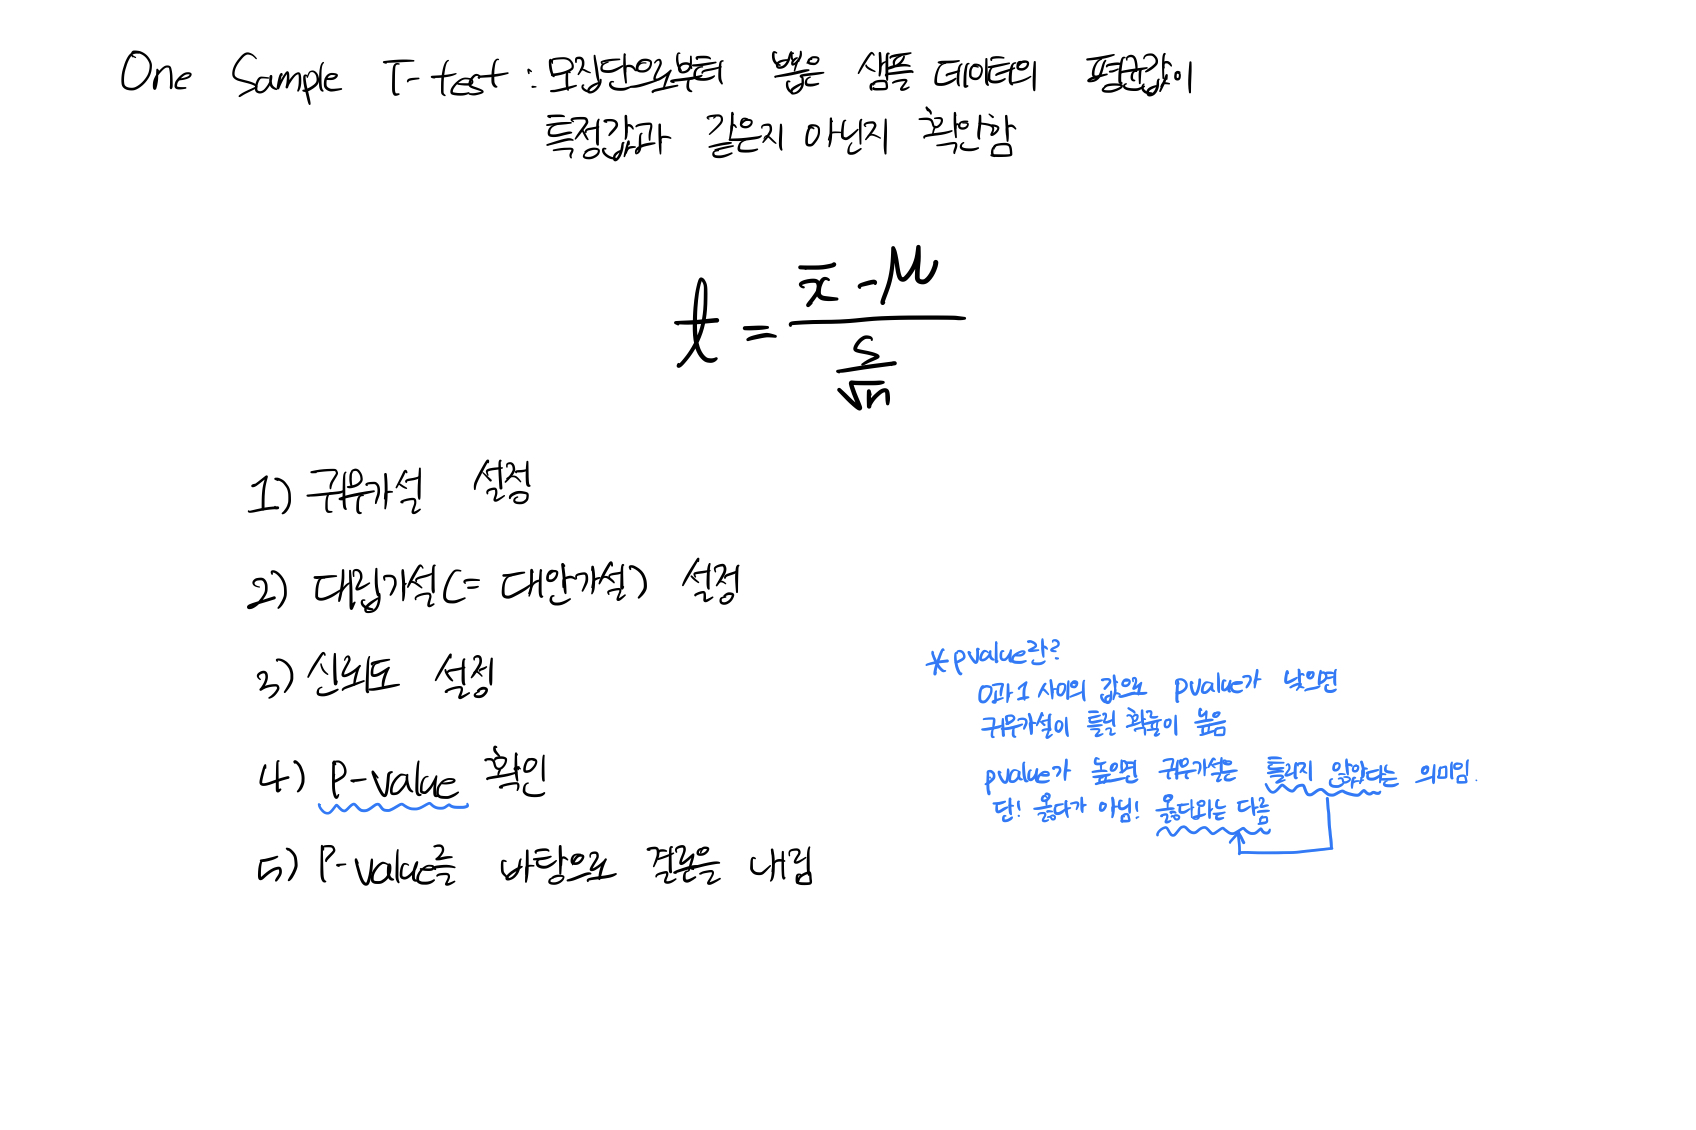 One Sample T-test : 모집단으로부터 뽑은 샘플 데이터의 평균값이
특정값과 같은지 아닌지 확인함
t = x̄ - μ / (s / √n)
1) 귀무가설 설정
2) 대립가설(= 대안가설) 설정
3) 신뢰도 설정
4) P-value 확인
5) P-value를 바탕으로 결론을 내림
* pvalue란?
0과 1 사이의 값으로 pvalue가 낮으면
귀무가설이 틀릴 확률이 높음
pvalue가 높으면 귀무가설은 틀리지 않았다는 의미임.
단! 옳다가 아님! 옳다와는 다름